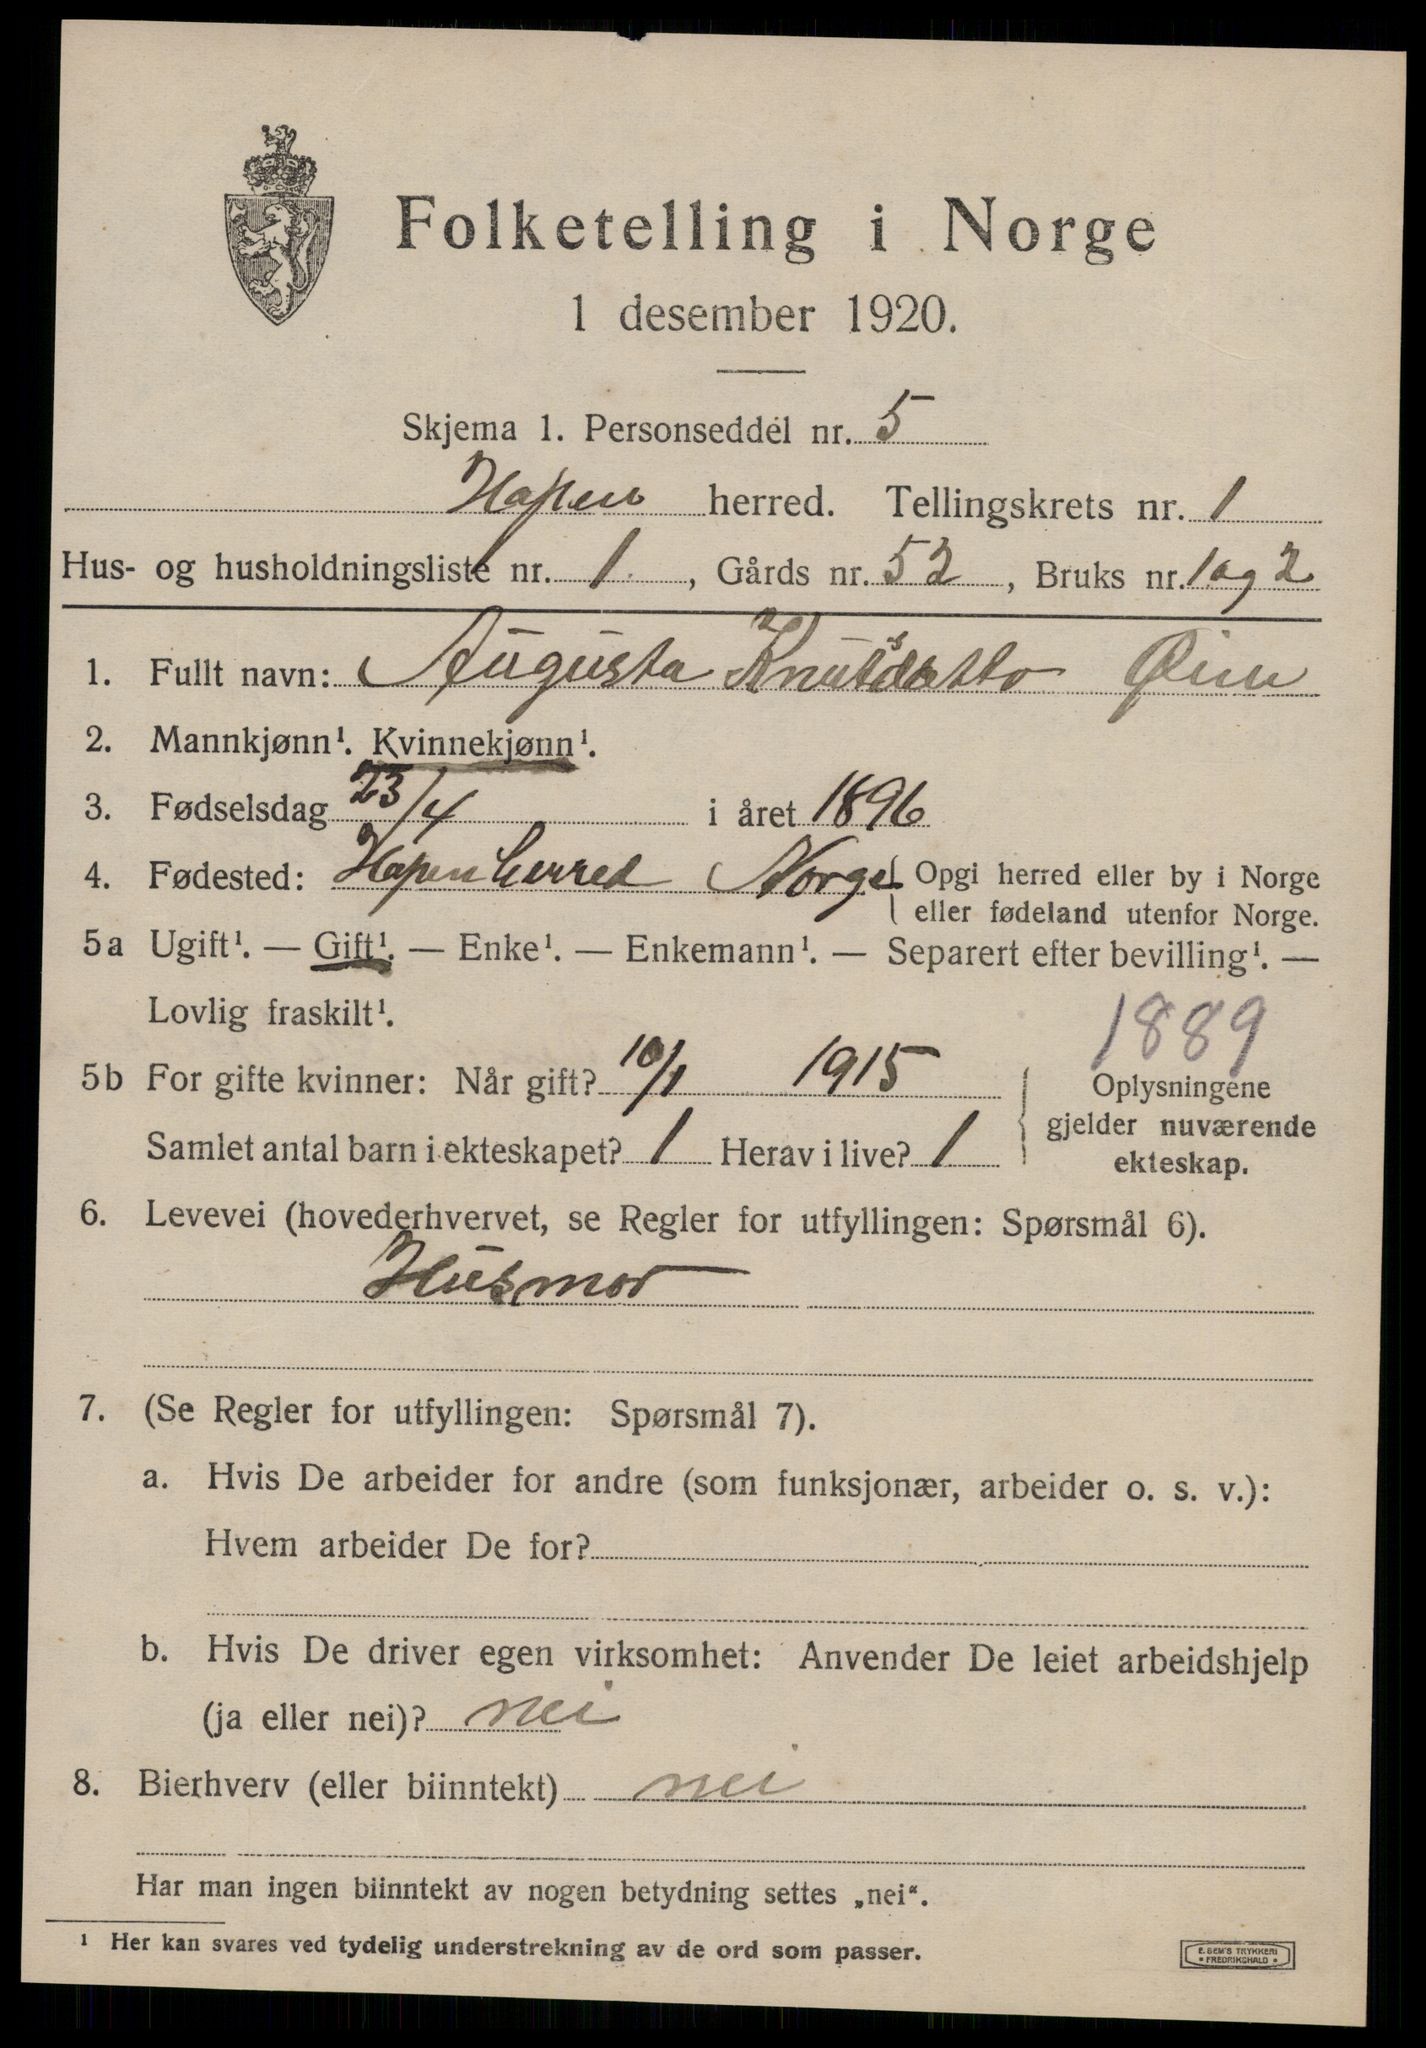 Folketelling i Norge
1 desember 1920.
Skjema 1. Personseddel nr. 5
Hapen herred. Tellingskrets nr. 1
Hus- og husholdningsliste nr. 1. , Gårds nr. 52 , Bruks nr. 1 og 2
1. Fullt navn: Augusta Knutsdatter Øien
2. Mannkjønn¹. Kvinnekjønn¹.
3. Fødselsdag 23/4 i året 1896
4. Fødested: Hapen herred Norge { Opgi herred eller by i Norge
eller fødeland utenfor Norge.
5a Ugift¹. — Gift¹. — Enke¹. — Enkemann¹. — Separert efter bevilling¹. —
Lovlig fraskilt¹.
1889
5b For gifte kvinner: Når gift? 10/1 1915
Samlet antal barn i ekteskapet? 1 Herav i live? 1
Oplysningene
gjelder nuværende
ekteskap.
6. Levevei (hovederhvervet, se Regler for utfyllingen: Spørsmål 6).
Husmor
7. (Se Regler for utfyllingen: Spørsmål 7).
a. Hvis De arbeider for andre (som funksjonær, arbeider o. s. v.):
Hvem arbeider De for?
b. Hvis De driver egen virksomhet: Anvender De leiet arbeidshjelp
(ja eller nei)? nei
8. Bierhverv (eller biinntekt) nei
Har man ingen biinntekt av nogen betydning settes „nei“.
¹ Her kan svares ved tydelig understrekning av de ord som passer.
E. SEM'S TRYKKERI
• FREDRIKSHALD •